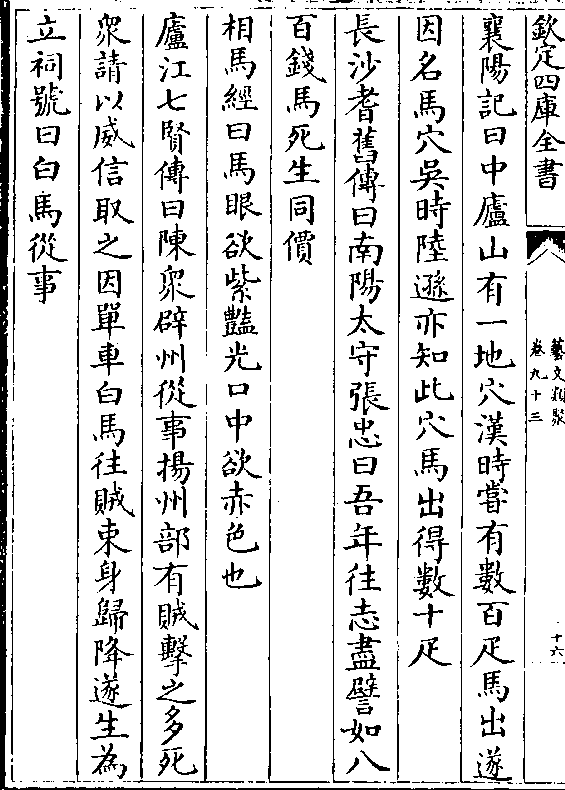 欽定四庫全書
藝文類聚
卷九十三
十六
襄陽記曰中廬山有一地穴漢時嘗有數百疋馬出遂
因名馬穴吳時陸遜亦知此穴馬出得數十疋
長沙耆舊傳曰南陽太守張忠曰吾年往志盡譬如八
百錢馬死生同價
相馬經曰馬眼欲紫豔光口中欲赤色也
廬江七賢傳曰陳衆辟州從事揚州部有賊擊之多死
衆請以威信取之因單車白馬往賊束身歸降遂生為
立祠號曰白馬從事